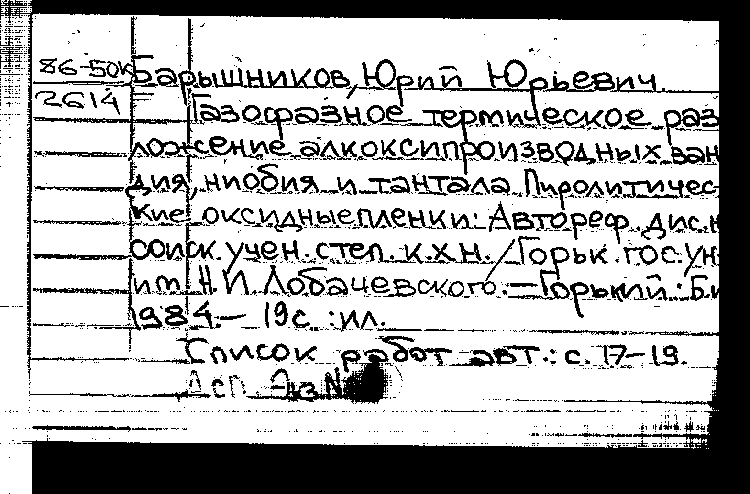 86-50к Барышников, Юрий Юрьевич.
2614 Газофазное термическое раз
ложение алкоксипроизводных вана
дия, ниобия и тантала. Пиролитичес-
кие оксидные пленки: Автореф. дис. н
соиск. учен. степ. к.х.н./Горьк. гос. ун
им. Н.И. Лобачевского. — Горький: Б.и
1984. — 19с. : ил.
Список работ авт.: с. 17-19.
Дсп. Экз. №